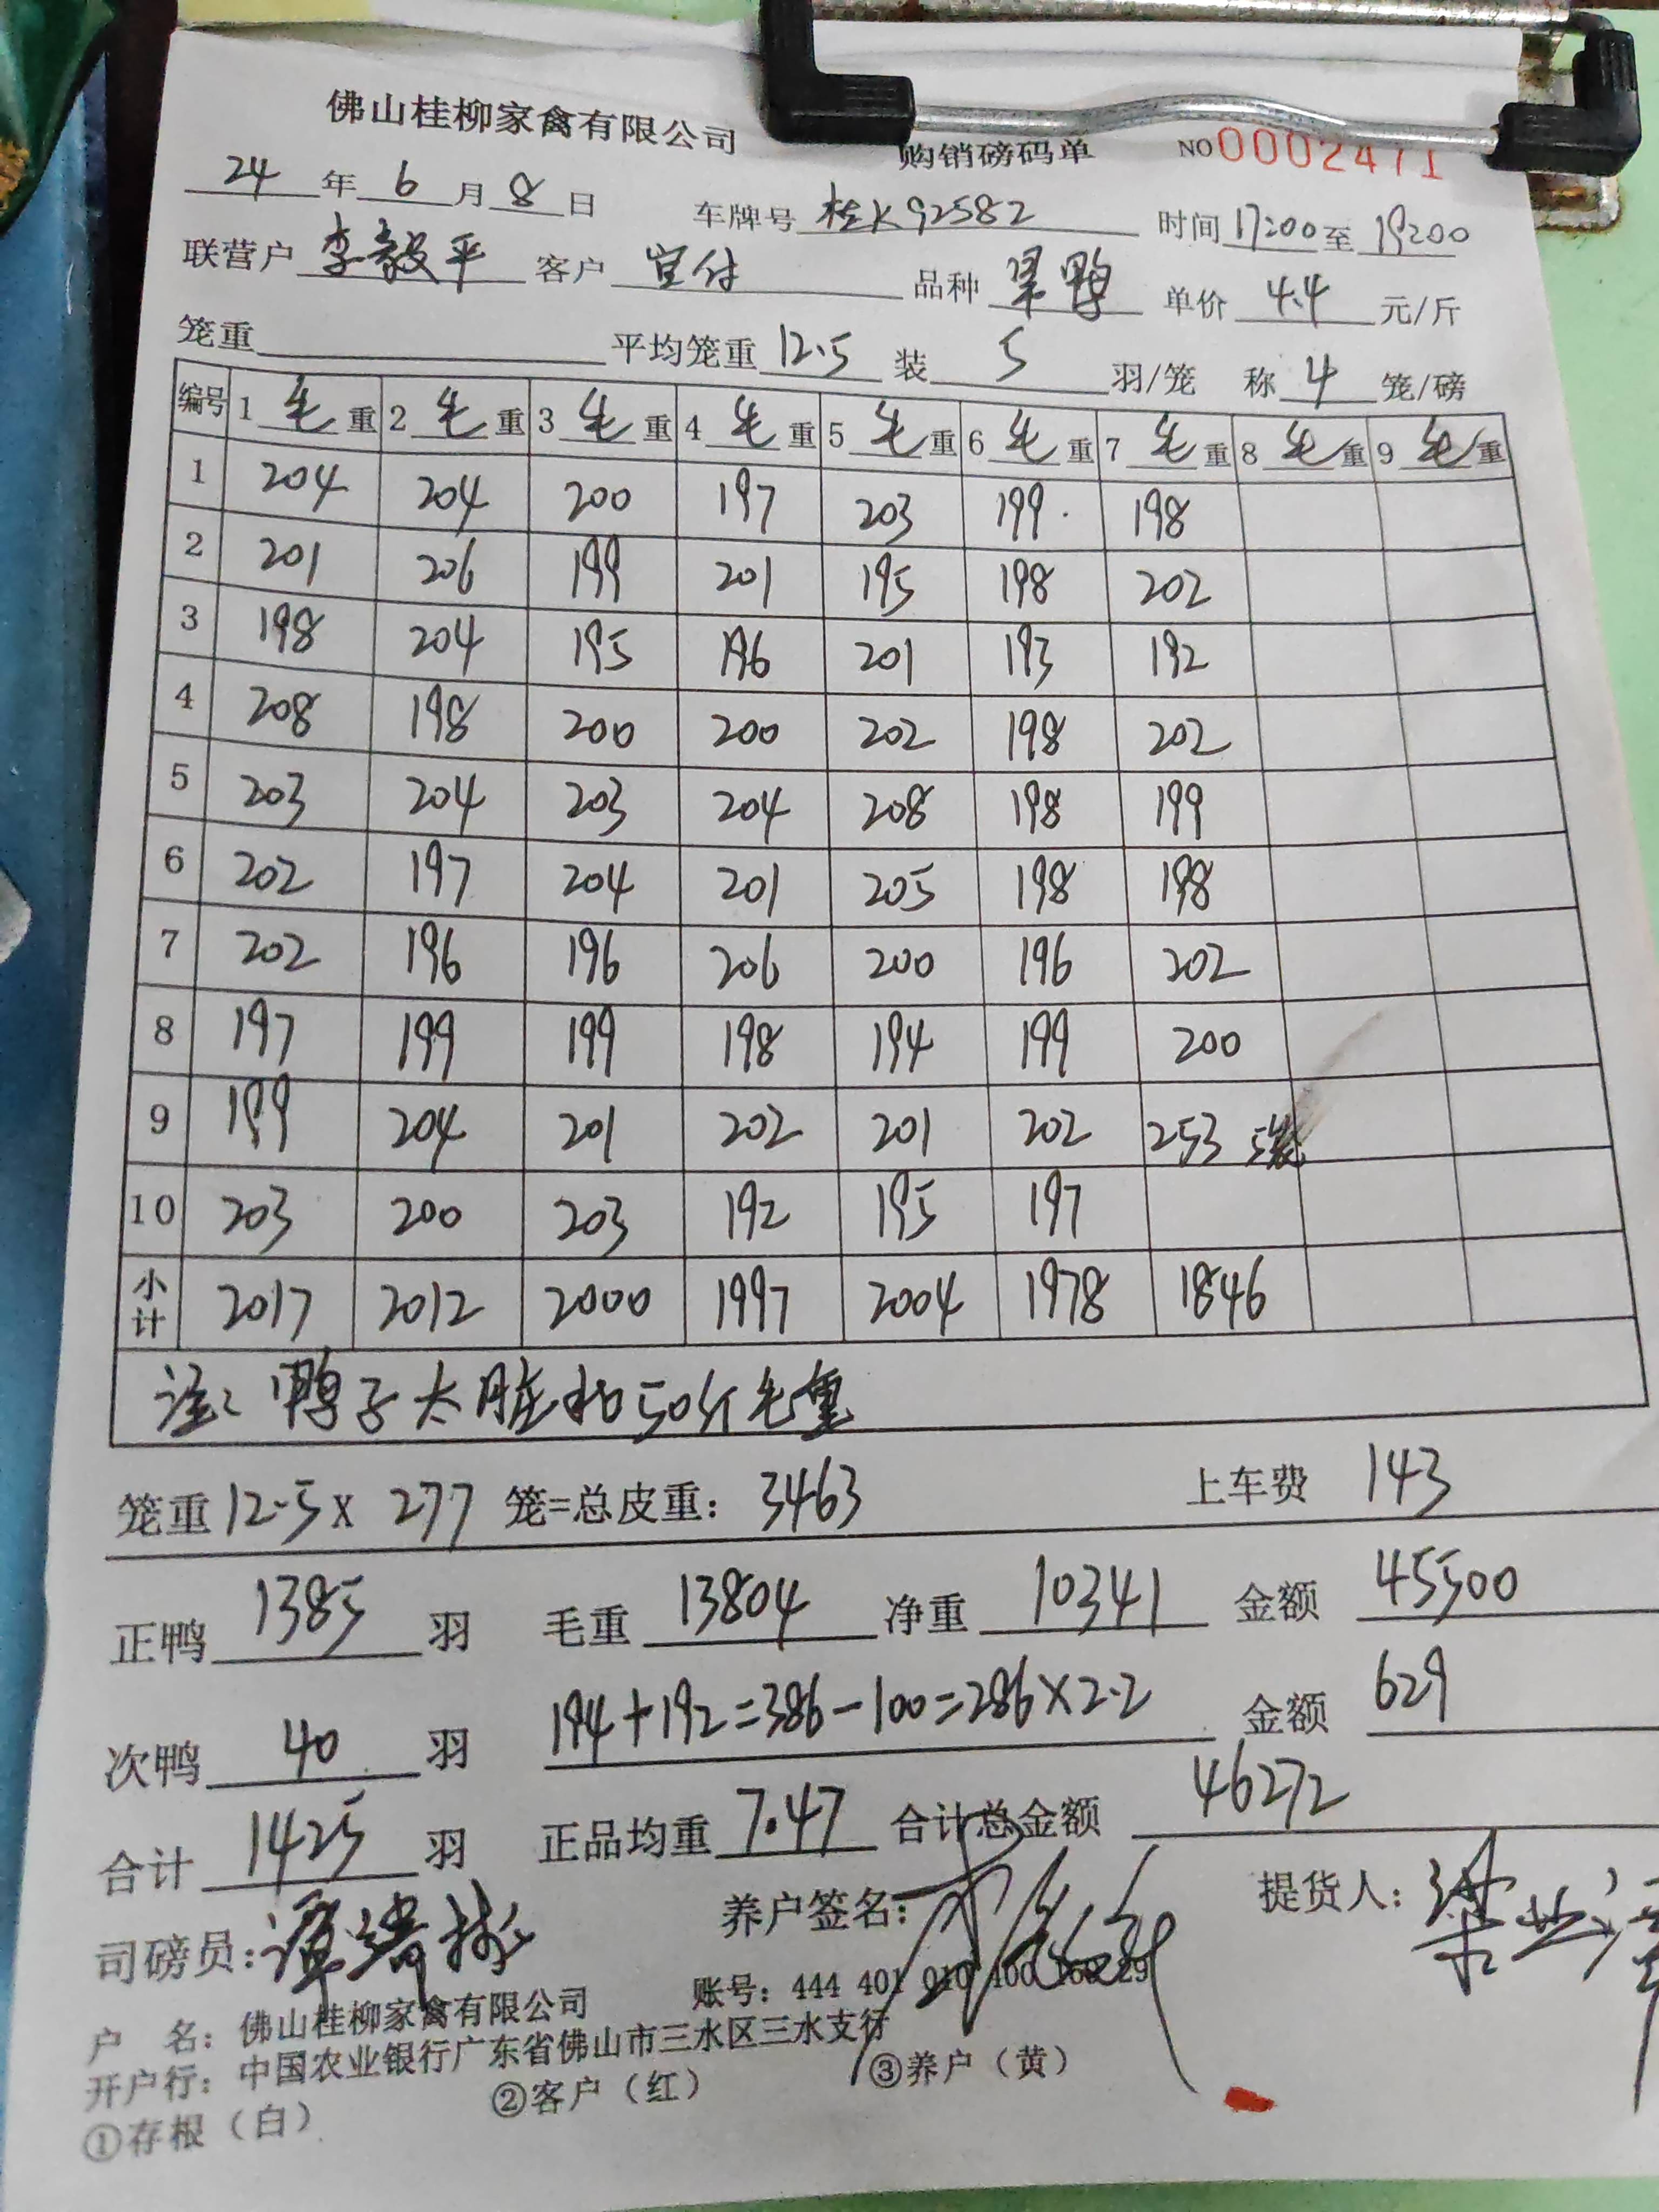 佛山桂柳家禽有限公司 购销磅码单 NO 0002471
24 年 6 月 8 日 车牌号 桂K92582 时间 17:00 至 19:00
联营户 李毅平 客户 宜付 品种 旱鸭 单价 4.4 元/斤
笼重 平均笼重 12.5 装 5 羽/笼 称 4 笼/磅
编号 1 毛 重 2 毛 重 3 毛 重 4 毛 重 5 毛 重 6 毛 重 7 毛 重 8 毛 重 9 毛 重
1 204 204 200 197 203 199 198
2 201 206 199 201 195 198 202
3 198 204 195 196 201 193 192
4 208 198 200 200 202 198 202
5 203 204 203 204 208 198 199
6 202 197 204 201 205 198 198
7 202 196 196 206 200 196 202
8 197 199 199 198 194 199 200
9 199 204 201 202 201 202 253 5笼
10 203 200 203 192 195 197
小计 2017 2012 2000 1997 2004 1978 1846
注: 鸭子太脏扣50斤毛重
笼重 12.5 X 277 笼=总皮重: 3463 上车费 143
正鸭 1385 羽 毛重 13804 净重 10341 金额 45500
次鸭 40 羽 194+192=386-100=286×2.2 金额 629
合计 1425 羽 正品均重 7.47 合计总金额 46272
司磅员: 养户签名: 提货人:
户 名: 佛山桂柳家禽有限公司 账号: 444 401 010 400 160 29
开户行: 中国农业银行广东省佛山市三水区三水支行
①存根（白） ②客户（红） ③养户（黄）